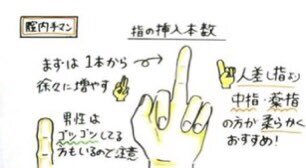 膣内手マン
指の挿入本数
まずは1本から
徐々に増やす
人差し指より
中指・薬指
の方が柔らかく
おすすめ!
男性は
ゴツゴツしてる
方もいるので注意